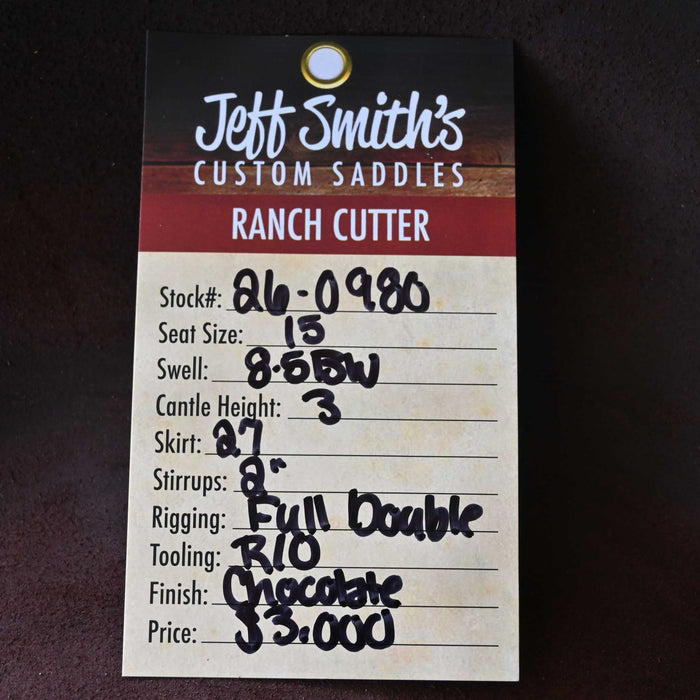 Jeff Smith's
CUSTOM SADDLES
RANCH CUTTER
Stock#: 26-0980
Seat Size: 15
Swell: 8.5BW
Cantle Height: 3
Skirt: 27
Stirrups: 2"
Rigging: Full Double
Tooling: RIO
Finish: Chocolate
Price: $3.000